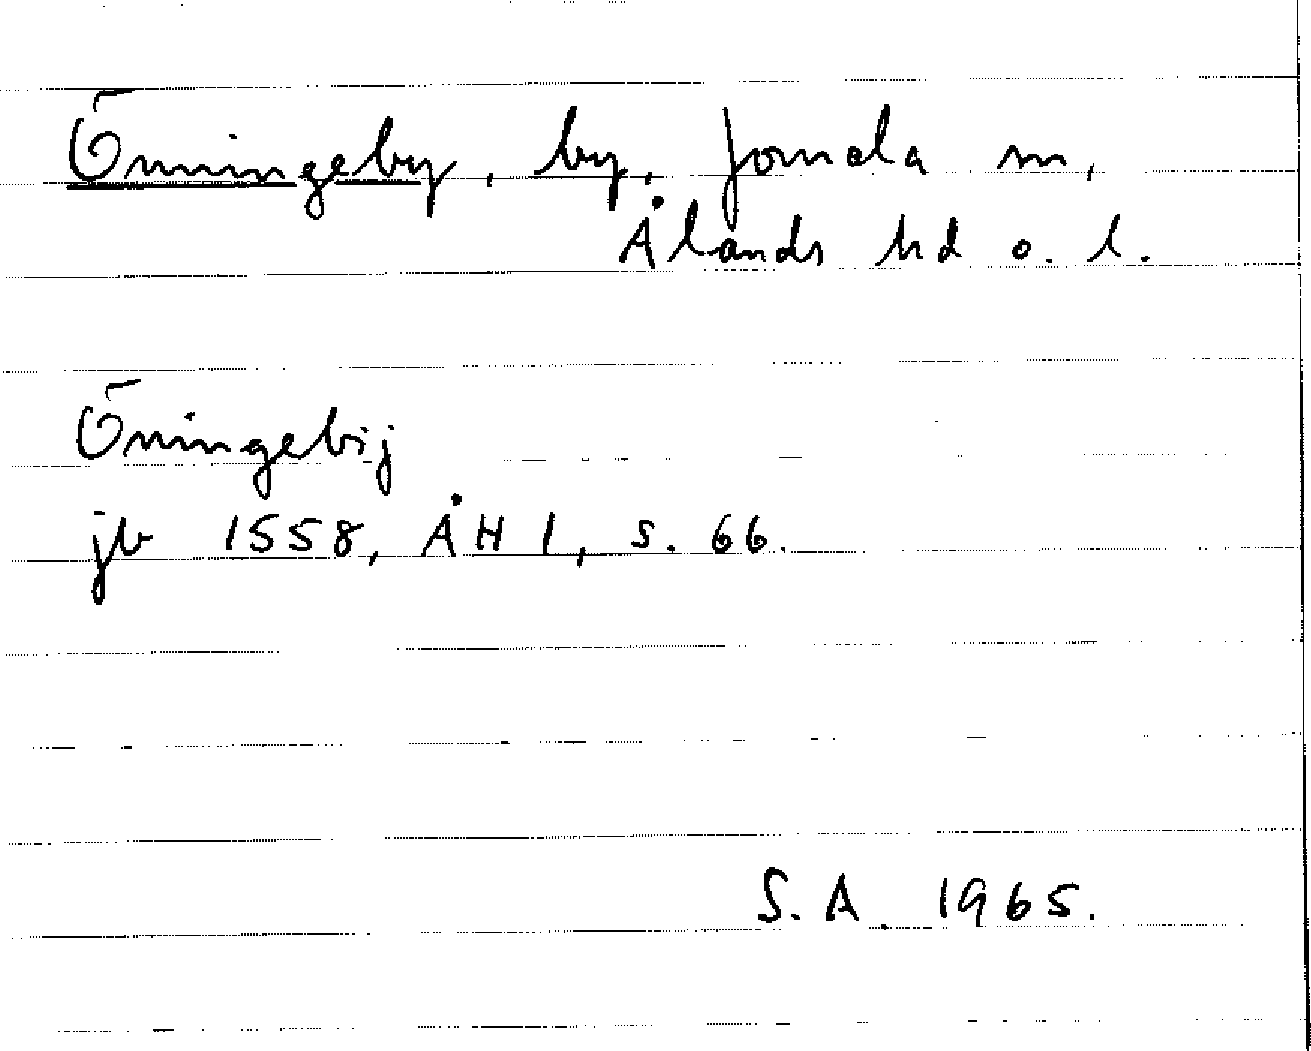 Önningeby, by, Jomala sn,
Ålands hd o. l.
Öningebÿ
jb 1558, ÅH 1, s. 66.
S. A. 1965.